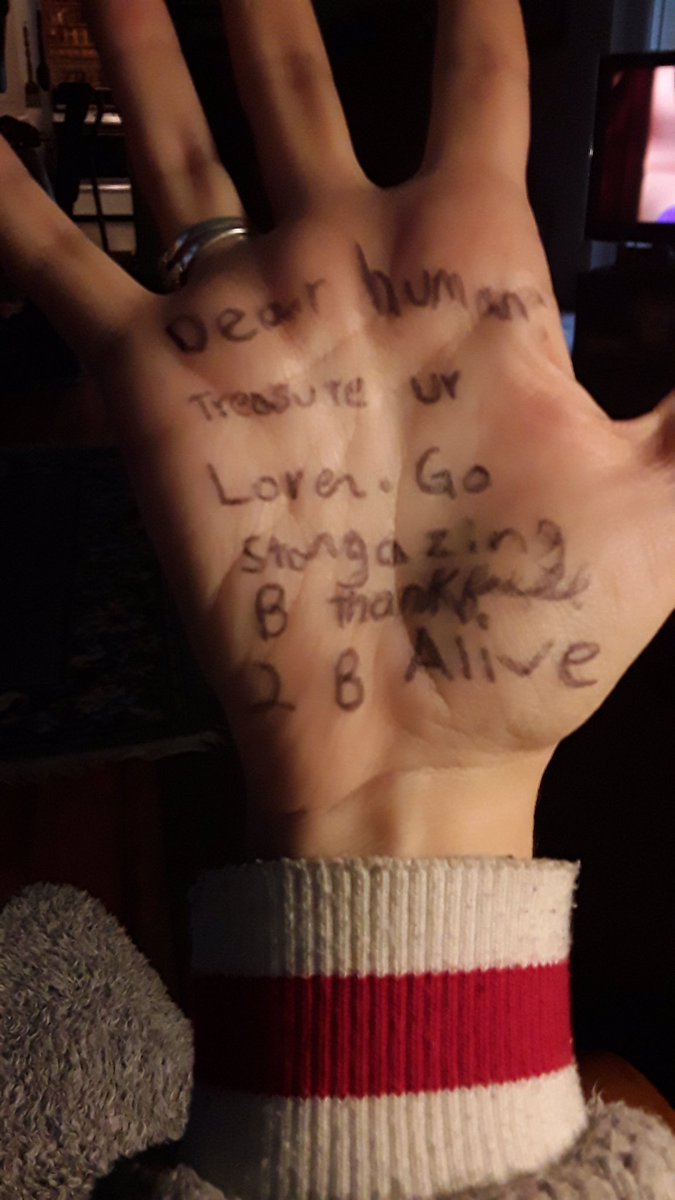 Dear human
Treasure ur
Lover. Go
stargazing
B thankful
2 B Alive